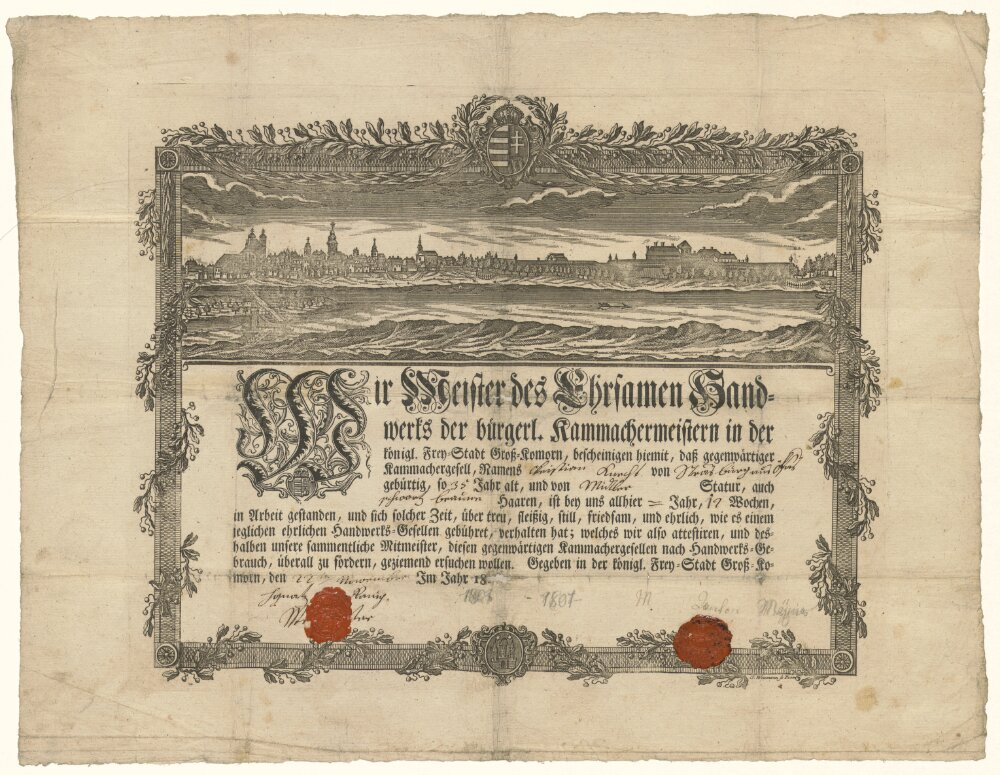 Wir Meister des Ehrsamen Hand-
werks der bürgerl. Kammachermeistern in der
königl. Frey-Stadt Groß-Komorn, bescheinigen hiemit, daß gegenwärtiger
Kammachergesell, Namens Christian Knecht von Strasburg aus
gebürtig, so 35 Jahr alt, und von Mütler Statur, auch
schwarz braune Haaren, ist bey uns allhier = Jahr, 12 Wochen,
in Arbeit gestanden, und sich solcher Zeit, über treu, fleißig, still, friedsam, und ehrlich, wie es einem
jeglichen ehrlichen Handwerks-Gesellen gebühret, verhalten hat; welches wir also attestiren, und des-
halben unsere sammentliche Mitmeister, diesen gegenwärtigen Kammachergesellen nach Handwerks-Ge-
brauch, überall zu fordern, geziemend ersuchen wollen. Gegeben in der königl. Frey-Stadt Groß-Ko-
morn, den 22 November Im Jahr 18
Ignatz König 1801 - 1801 M